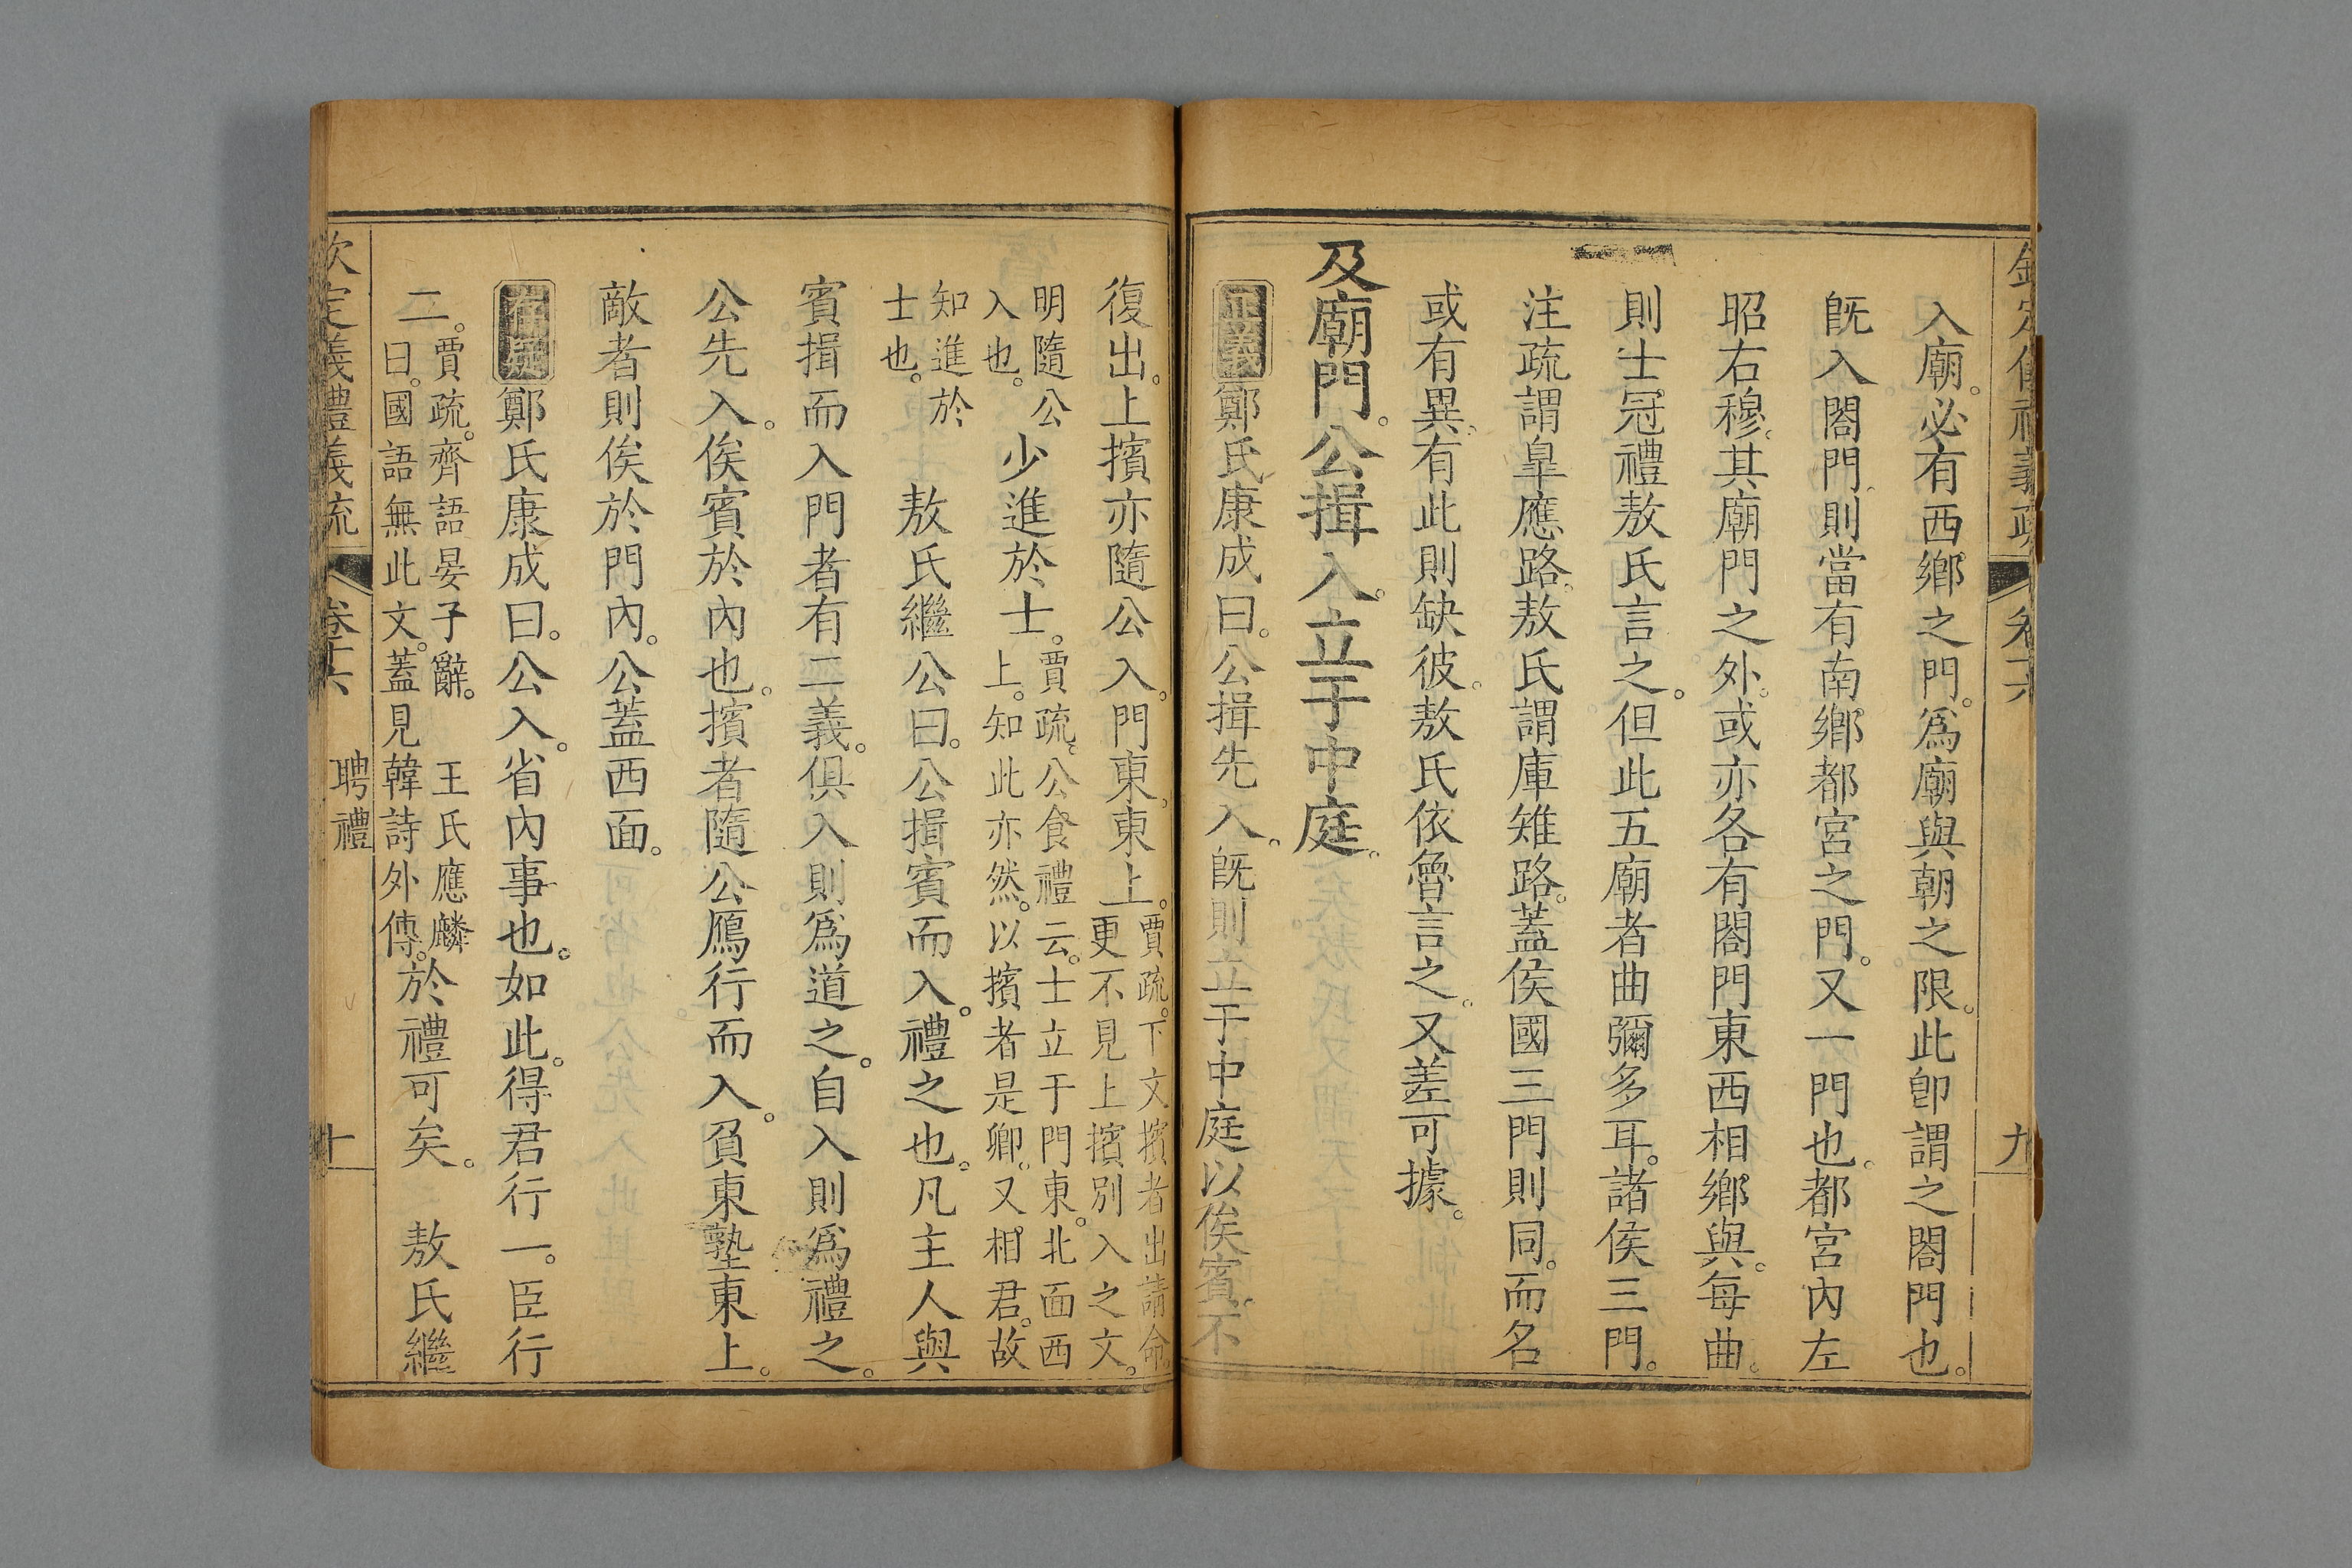 欽定儀禮義疏 卷十六 九
入廟必有西鄉之門爲廟與朝之限此卽謂之閤門也
旣入閤門則當有南鄉都宮之門又一門也都宮內左
昭右穆其廟門之外或亦各有閤門東西相鄉與每曲
則士冠禮敖氏言之但此五廟者曲彌多耳諸侯三門
注疏謂皐應路敖氏謂庫雉路蓋侯國三門則同而名
或有異有此則缺彼敖氏依魯言之又差可據
及廟門公揖入立于中庭
正義鄭氏康成曰公揖先入旣則立于中庭以俟賓不
復出上擯亦隨公入門東東上賈疏下文擯者出請命
更不見上擯別入之文
明隨公
入也少進於士賈疏公食禮云士立于門東北面西
上知此亦然以擯者是卿又相君故
知進於
士也 敖氏繼公曰公揖賓而入禮之也凡主人與
賓揖而入門者有二義俱入則爲道之自入則爲禮之
公先入俟賓於內也擯者隨公鴈行而入負東塾東上
敵者則俟於門內公蓋西面
存疑鄭氏康成曰公入省內事也如此得君行一臣行
二賈疏齊語晏子辭 王氏應麟
曰國語無此文蓋見韓詩外傳於禮可矣 敖氏繼
欽定義禮義疏 卷十六 聘禮 十